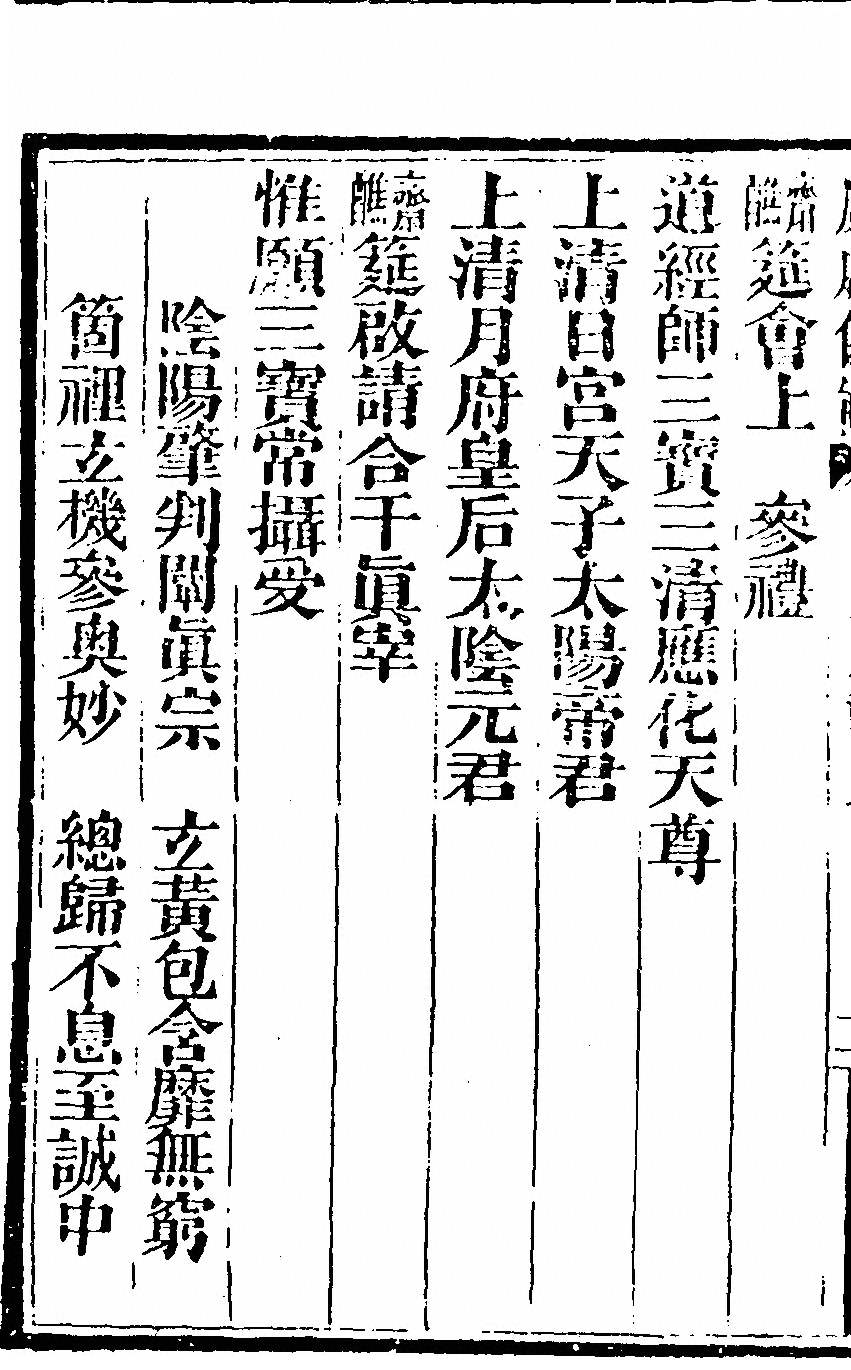 齋醮筵會上　參禮
道經師三寶三清應化天尊
上清日宮天子太陽帝君
上清月府皇后太陰元君
齋醮筵啟請合干眞宰
惟願三寶常攝受
陰陽肇判闡眞宗　玄黃包含靡無窮
箇裡玄機參奧妙　總歸不息至誠中